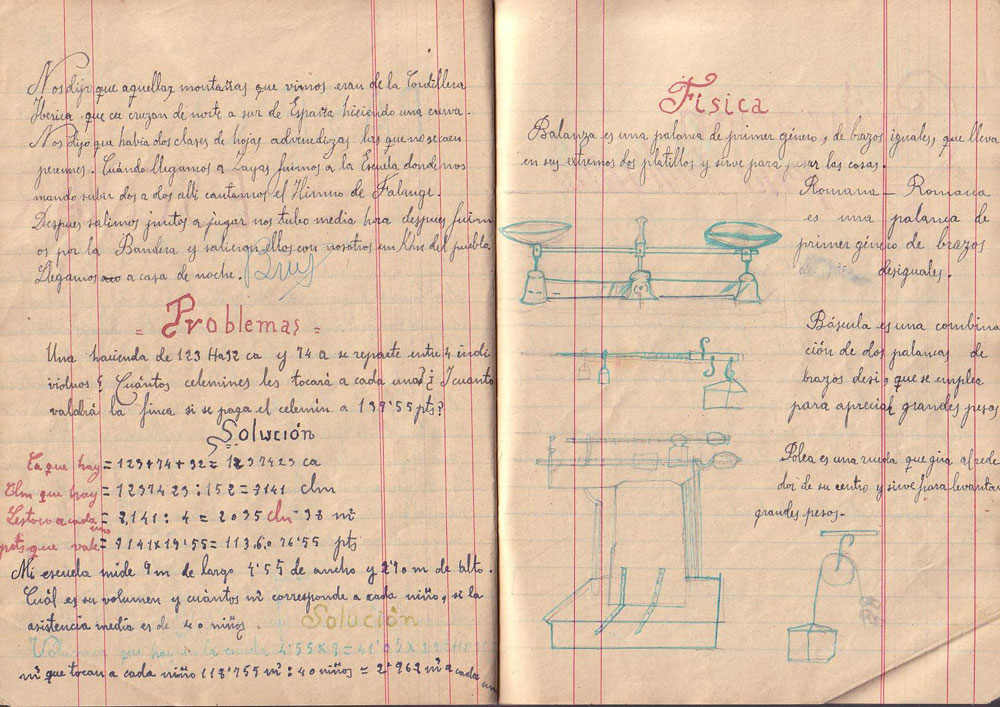 Nos dijo que aquellas montañas que vimos eran de la Cordillera
Iberica que cruzan de norte a sur de España hiciendo una curva.
Nos dijo que había dos clases de hojas las que no se caen
perennes. Cuándo llegamos a Zayas fuimos a la Escuela donde nos
mando subir dos a dos alli cantamos el Himno de Falange.
Despues salimos juntos a jugar nos tubo media hora despues fuim
os por la Bandera y salieron ellos con nosotros un Km del pueblo
Llegamos a casa de noche.
= Problemas =
Una hacienda de 123 Ha 32 ca y 74 a se reparte entre 4 indi
viduos ¿ Cuántos celemines les tocará a cada uno? ¿ Y cuanto
valdrá la finca si se paga el celemín a 139'55 pts?
Solución
Ca que hay = 123+74+32 = 1237423 ca
Clm que hay = 1237423 : 152 = 8141 clm
cada uno = 8,141 : 4 = 2035 clm 38 m²
pts que vale = 8141x19'55 = 113.6.076'55 pts
Mi escuela mide 9 m de largo 4'55 de ancho y 2'90 m de alto.
Cuál es su volumen y cuántos m³ corresponde a cada niño, si la
asistencia media es de 40 niños.
Solución
Volumen que hay 4'55x9=41'05x2
m³ que tocan a cada niño 118'755 m³ : 40 niños = 2'962 m³ a cada uno
Fisica
Balanza es una palanca de primer género, de brazos iguales, que lleva
en sus extremos dos platillos y sirve para pesar las cosas.
Romana – Romana
es una palanca de
primer género de brazos
desiguales.
Báscula es una combina
ción de dos palancas de
brazos desi, que se emplea
para apreciar grandes pesos
Polea es una rueda que gira alrede
dor de su centro y sirve para levantar
grandes pesos.